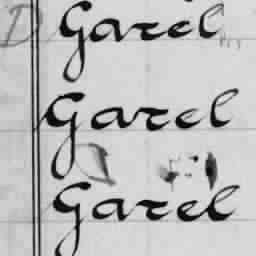 Garel
Garel
Garel